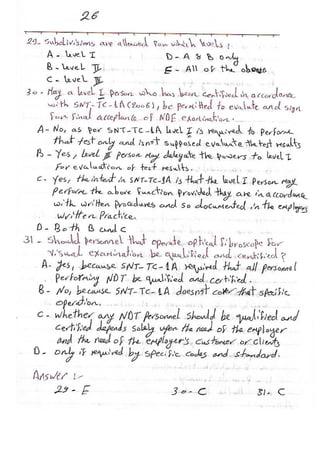 26
29- Subdivisions are allowed for which levels:
A- Level I D- A & B only
B- Level II E- All of the above
C- Level III
30- May a level I person who has been certified in accordance
with SNT-TC-1A (2006), be permitted to evaluate and sign
for final acceptance of NDE examination.
A- No, as per SNT-TC-1A level I is required to perform
that test only and isn't supposed evaluate the test results
B- Yes, level III person may delegate the powers to level I
for evaluation of test results.
C- Yes, the intent in SNT-TC-1A is that the level I Person may
perform the above function provided they are in accordance
with written procedures and so documented in the employers
written Practice.
D- Both B and C
31- Should personnel that operate optical fibroscope for
visual examination be qualified and certified?
A. Yes, because SNT-TC-1A required that all personnel
performing NDT be qualified and certified.
B- No, because SNT-TC-1A doesn't cover that specific
operation.
C- Whether any NDT Personnel should be qualified and
certified depends solely upon the need of the employer
and the need of the employer's customer or clients
D- only if required by specific codes and standard.
Answer :-
29- E 30- C 31- C